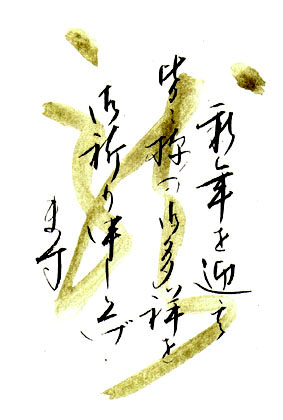 新年を迎え
皆々様の御多祥を
御祈り申し上げ
ます